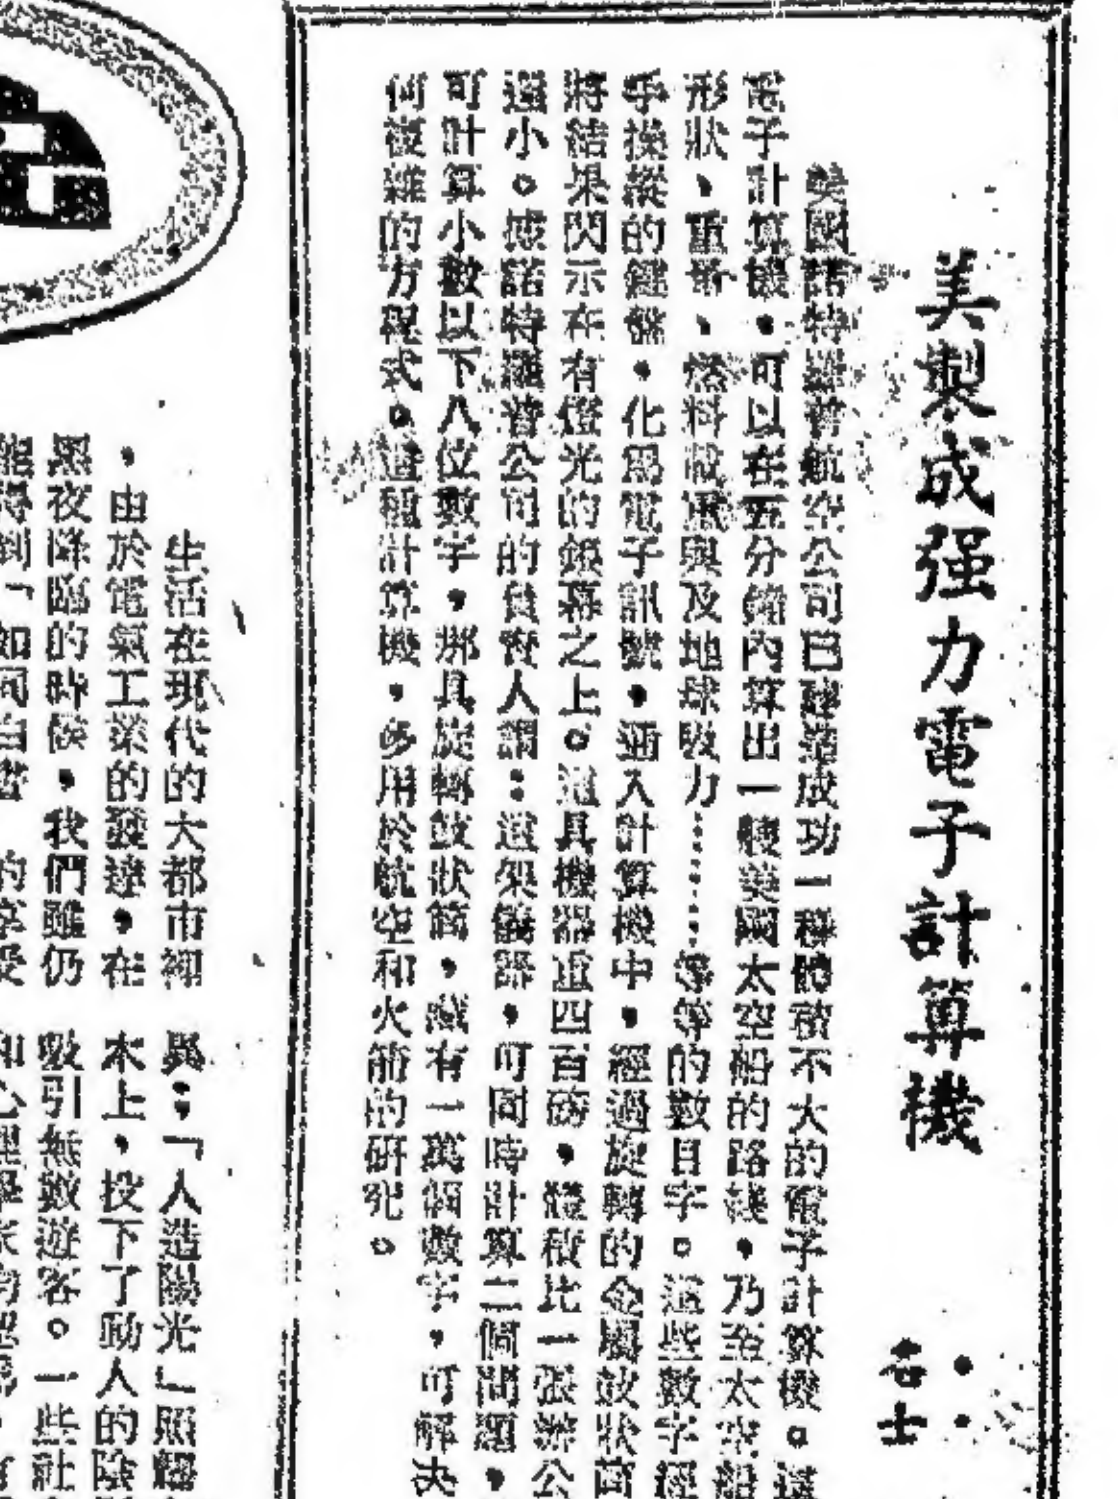 美製成强力電子計算機
名士
美國諾特羅普航空公司已建造成功一種體積不大的電子計算機。這
電子計算機,可以在五分鐘內算出一艘美國太空船的路綫,乃至太空船
形狀、重量、燃料消耗與及地球吸力……等等的數目字。這些數字經
手操縱的鍵盤,化爲電子訊號,通入計算機中,經過旋轉的金屬鼓狀筒
將結果閃示在有燈光的銀幕之上。這具機器重四百磅,體積比一張辦公
還小。據諾特羅普公司的負責人謂:這架儀器,可同時計算二個問題,
可計算小數以下八位數字,那具旋轉鼓狀筒,藏有一萬個數字,可解决
何複雜的方程式。這種計算機,多用於航空和火箭的研究。
生活在現代的大都市裡
,由於電氣工業的發達,在
黑夜降臨的時候,我們雖仍
能得到「如同白晝 的享受
異:「人造陽光」照耀
木上,投下了動人的陰
吸引無數遊客。一些社
和心理學家